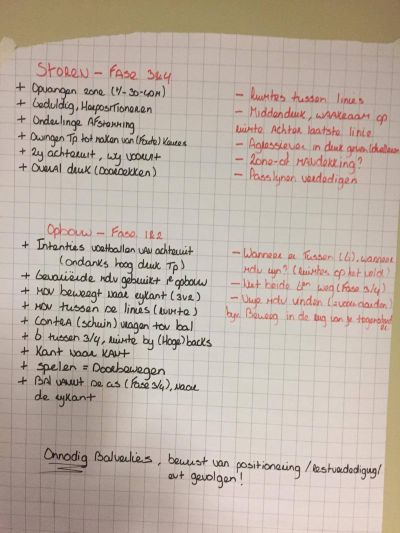 Storen - Fase 3&4
+ Opvangen zone (+/- 30-40m)
+ Geduldig, Herpositioneren
+ Onderlinge Afstemming
+ Dwingen Tp tot maken van (foute) keuzes
+ Zy achteruit, wy vooruit
+ Overal druk (Doordekken)
- Ruimtes tussen linies
- Middendruk, waakzaam op
ruimte achter laatste linie
- Agressiever in druk geven
- Zone- of mandekking?
- Passlynen verdedigen
Opbouw - Fase 1&2
+ Intenties voetballen van achteruit
(ondanks hoog druk Tp)
+ Gevarieerde mdv gebruikt opbouw
+ MDV beweegt naar zykant (3v2)
+ MDV tussen de linies (ruimte)
+ Contra (schyn) vragen tov bal
+ 6 tussen 3/4, ruimte by (Hoge) backs
+ Kant naar kant
+ Spelen = Doorbewegen
+ Bal vanuit de as (Fase 3/4), naar
de zykant
- Wanneer er tussen (Li), wanneer
mdv zyn? (Ruimtes op het veld)
- Niet beide weg (Fase 3/4)
- Vrije mdv vinden
byv. Beweeg in de rug van je tegenstander
Onnodig Balverlies, bewust van positionering / restverdediging /
evt gevolgen!